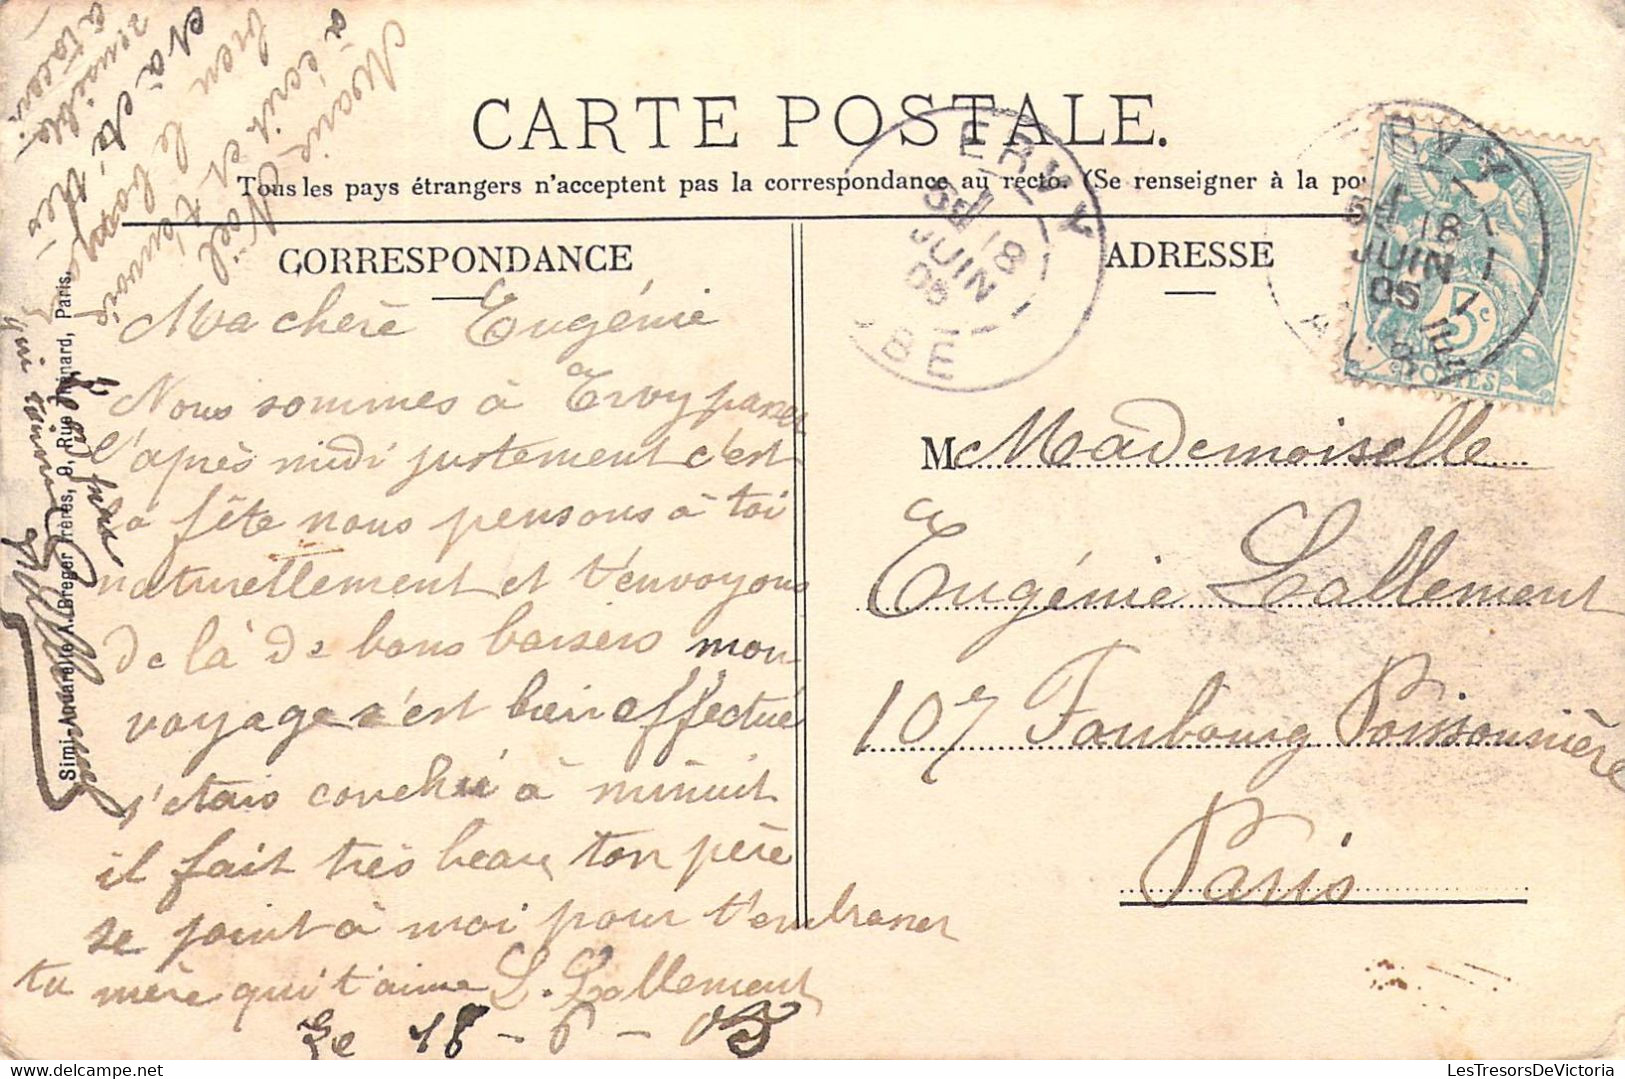 CARTE POSTALE.
Tous les pays étrangers n'acceptent pas la correspondance au recto. (Se renseigner à la po
CORRESPONDANCE
ADRESSE
Ma chère Eugénie
Nous sommes à Ervy passer
l'après midi justement c'est
la fête nous pensons à toi
naturellement et t'envoyons
de là de bons baisers mon
voyage s'est bien effectué
j'etais couché à minuit
il fait très beau ton père
se joint à moi pour t'embrasser
ta mère qui t'aime L. Lallement
Le 18 - 6 - 05
Marie Noël
à écrit et t'envoie
bien le bonjour
et à été très
sensible
à ta
Mademoiselle
Eugénie Lallement
107 Faubourg Poissonnière
Paris
ERVY
18
JUIN
05
AUBE
ERVY
18
JUIN
05
5c
POSTES
Simi-Aquarelle A. Breger frères, 9, Rue Thénard, Paris.
LesTresorsDeVictoria